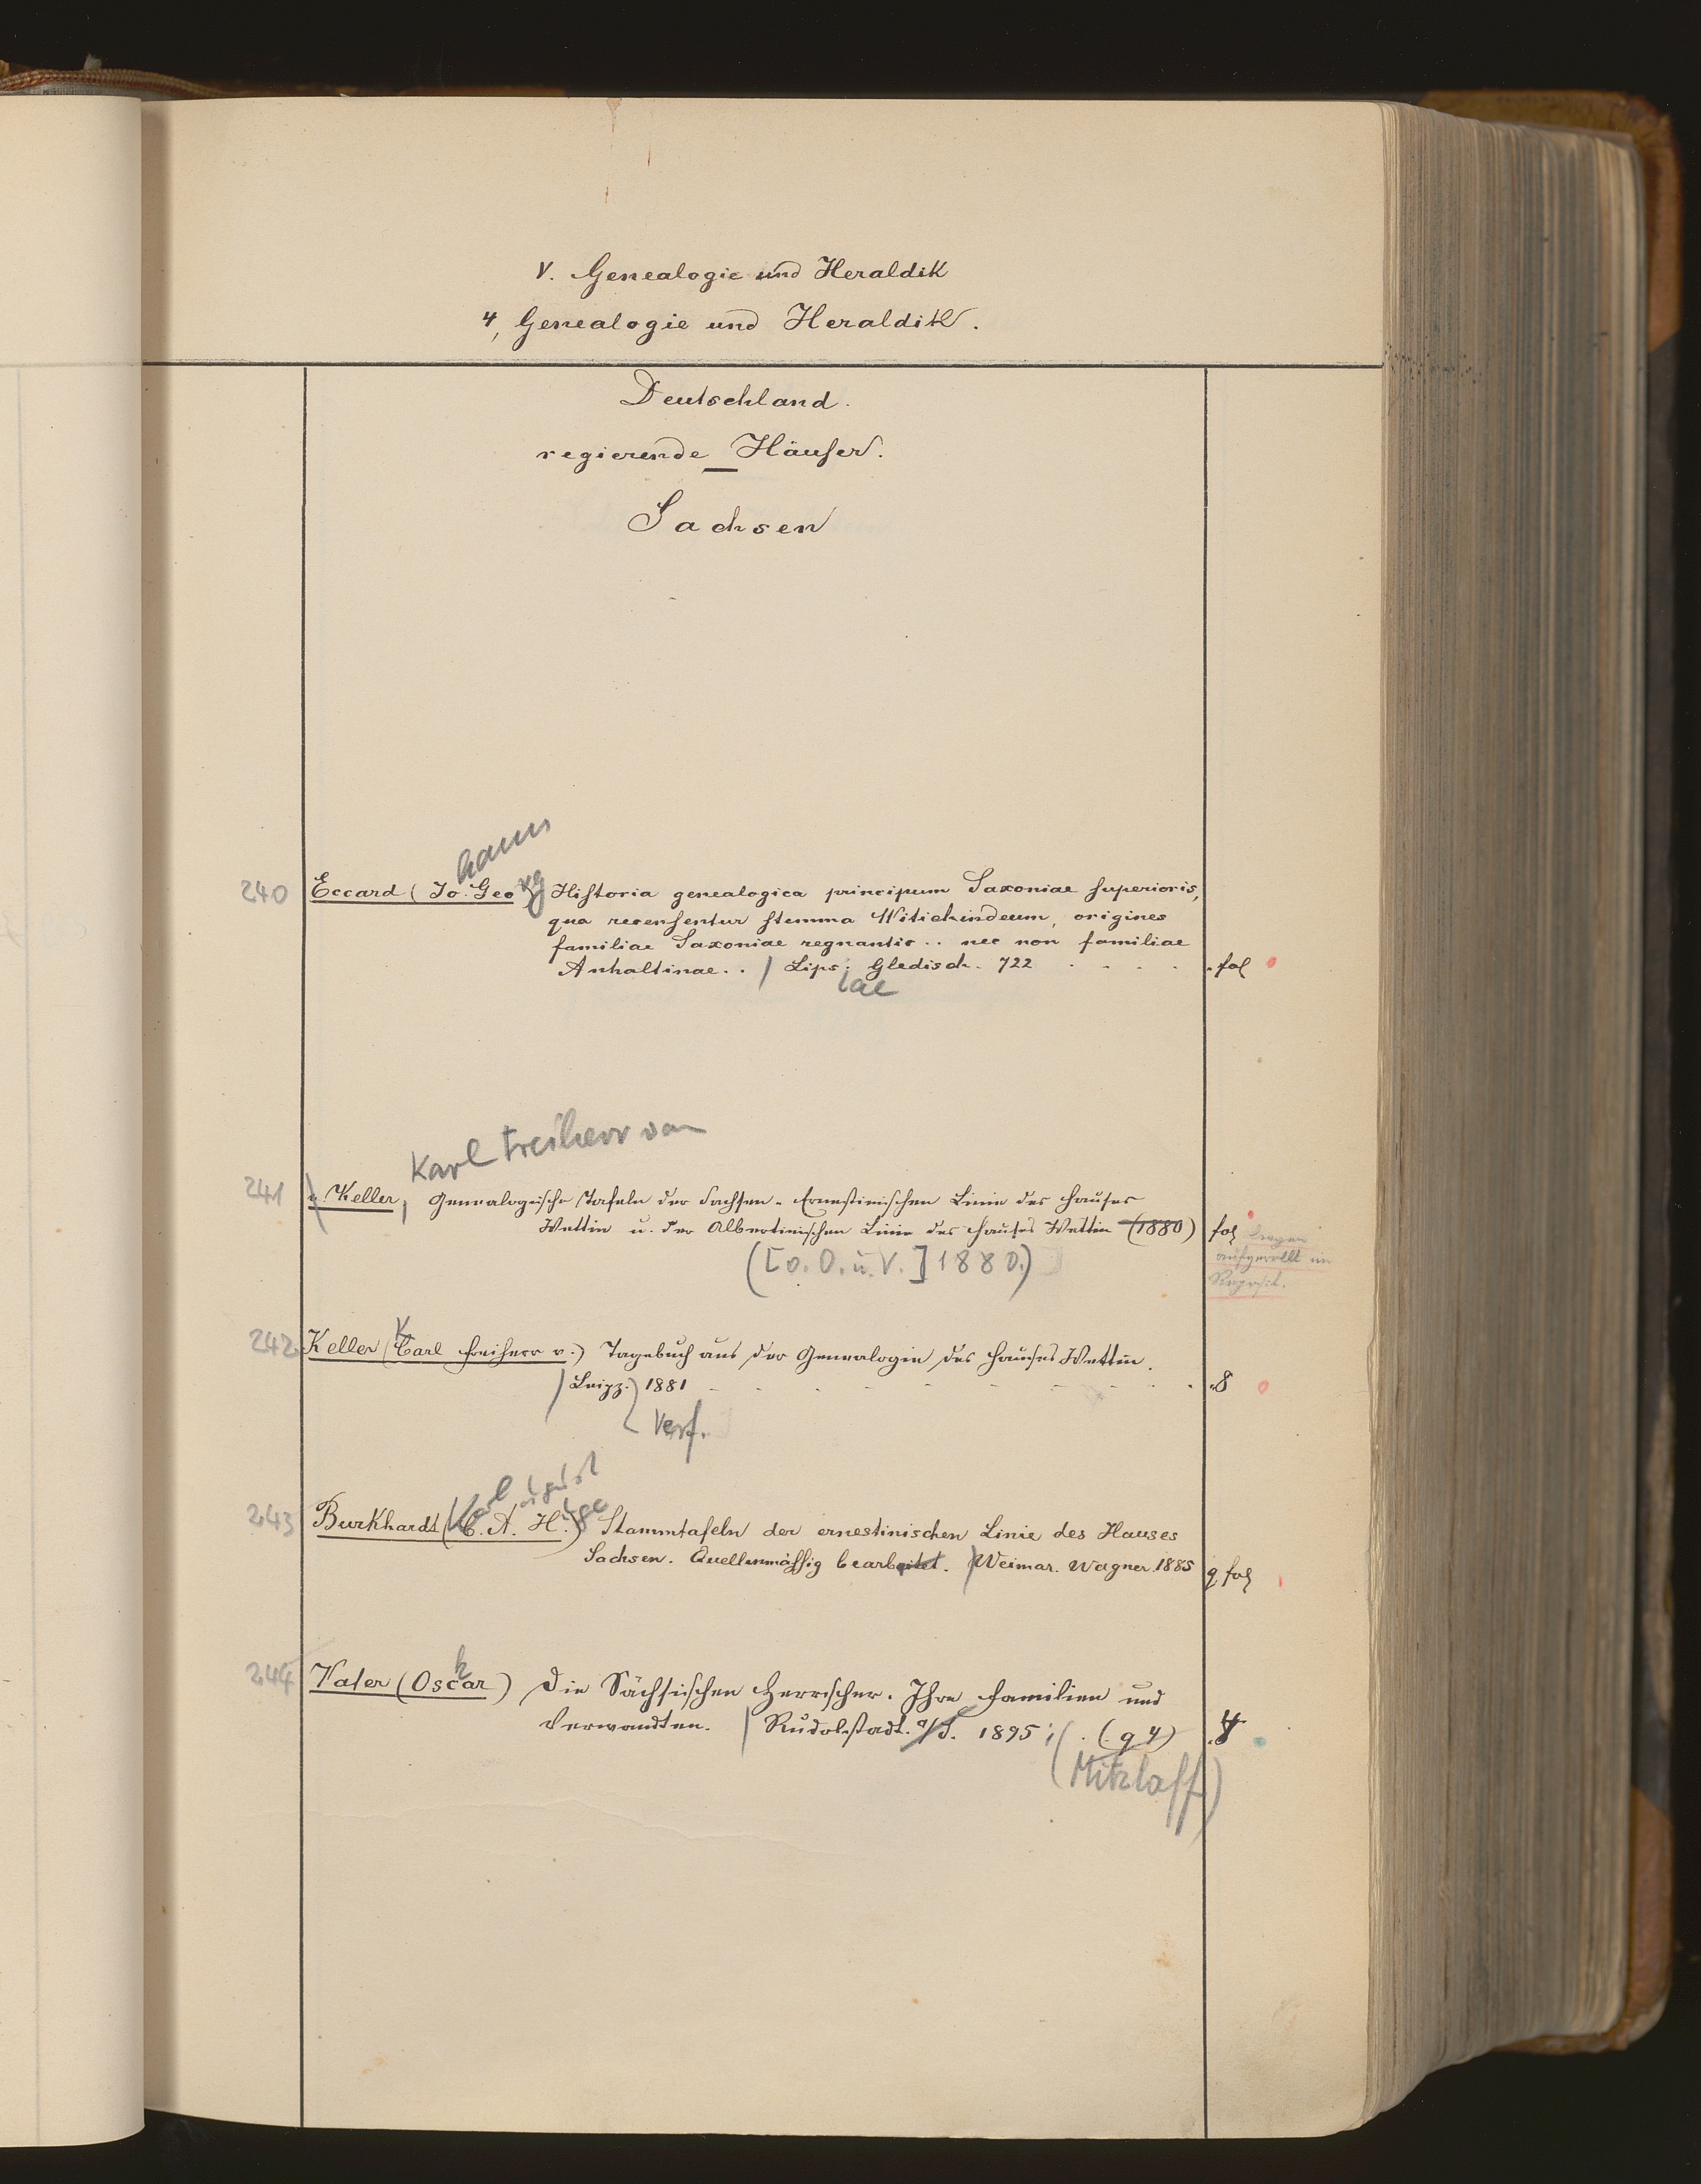 V. Genealogie und Heraldik
4, Genealogie und Heraldik.
Deutschland.
regierende Häuser.
Sachsen
hann
240 Eccard (Jo. Georg) Historia genealogica principum Saxoniae superioris,
qua recensentur stemma Witichindeum, origines
familiae Saxoniae regnantis .. nec non familiae
Anhaltinae .. / Lips. Gledisch. 722 . . . . fol
iae
Karl Freiherr von
241 v. Keller, Genealogische Tafeln der Sachsen-Ernestinischen Linie des Hauses
Wettin u. der Albertinischen Linie des Hauses Wettin (1880) fol liegen
([o. O. u. V.] 1880.) aufgerollt im
Reposit.
K
242 Keller (Carl Freiherr v.) Tagebuch aus der Genealogie des Hauses Wettin.
/ Leipz. 1881 . . . . . . . . 8
Verf.
Karl ugust
243 Burkhardt (C. A. H.) Stammtafeln der ernestinischen Linie des Hauses
Sachsen. Quellenmässig bearbeitet. / Weimar. Wagner. 1885 g fol
k
244 Vater (Oscar) Die Sächsischen Herrscher. Ihre Familien und
Verwandten. / Rudolstadt. a/S. 1895; . (g 4) 4
(Mitzlaff)